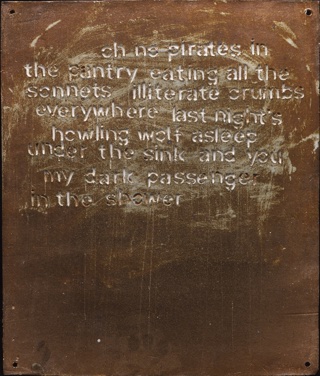 oh no pirates in
the pantry eating all the
sonnets illiterate crumbs
everywhere last night's
howling wolf asleep
under the sink and you
my dark passenger
in the shower